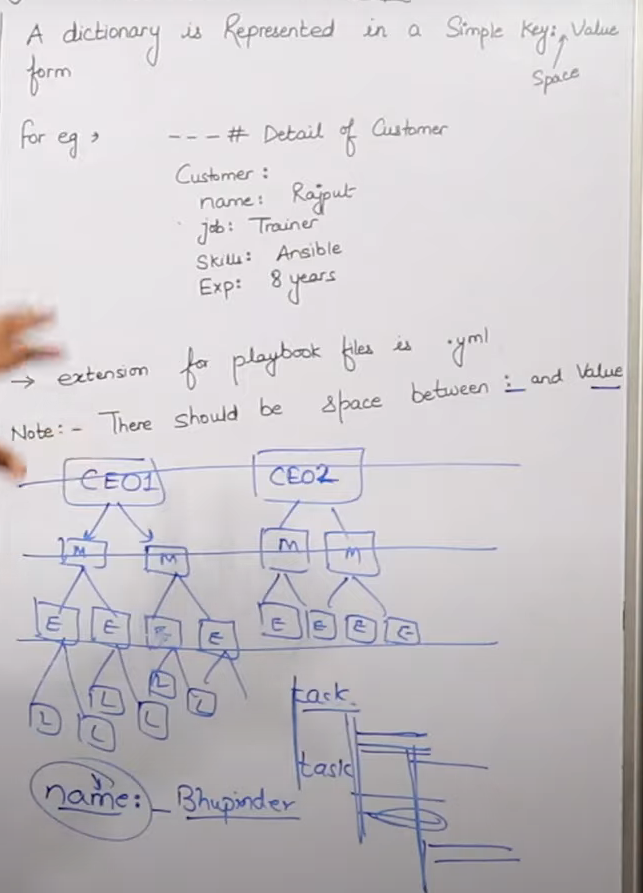 A dictionary is Represented in a Simple Key: Value
form
Space
For eg,
--- # Detail of Customer
Customer:
name: Rajput
job: Trainer
Skills: Ansible
Exp: 8 years
→ extension for playbook files is .yml
Note:- There should be space between : and Value
CEO1 CEO2
M M M M
E E E E E E E
L L L L L L
task.
task
name: _ Bhupinder